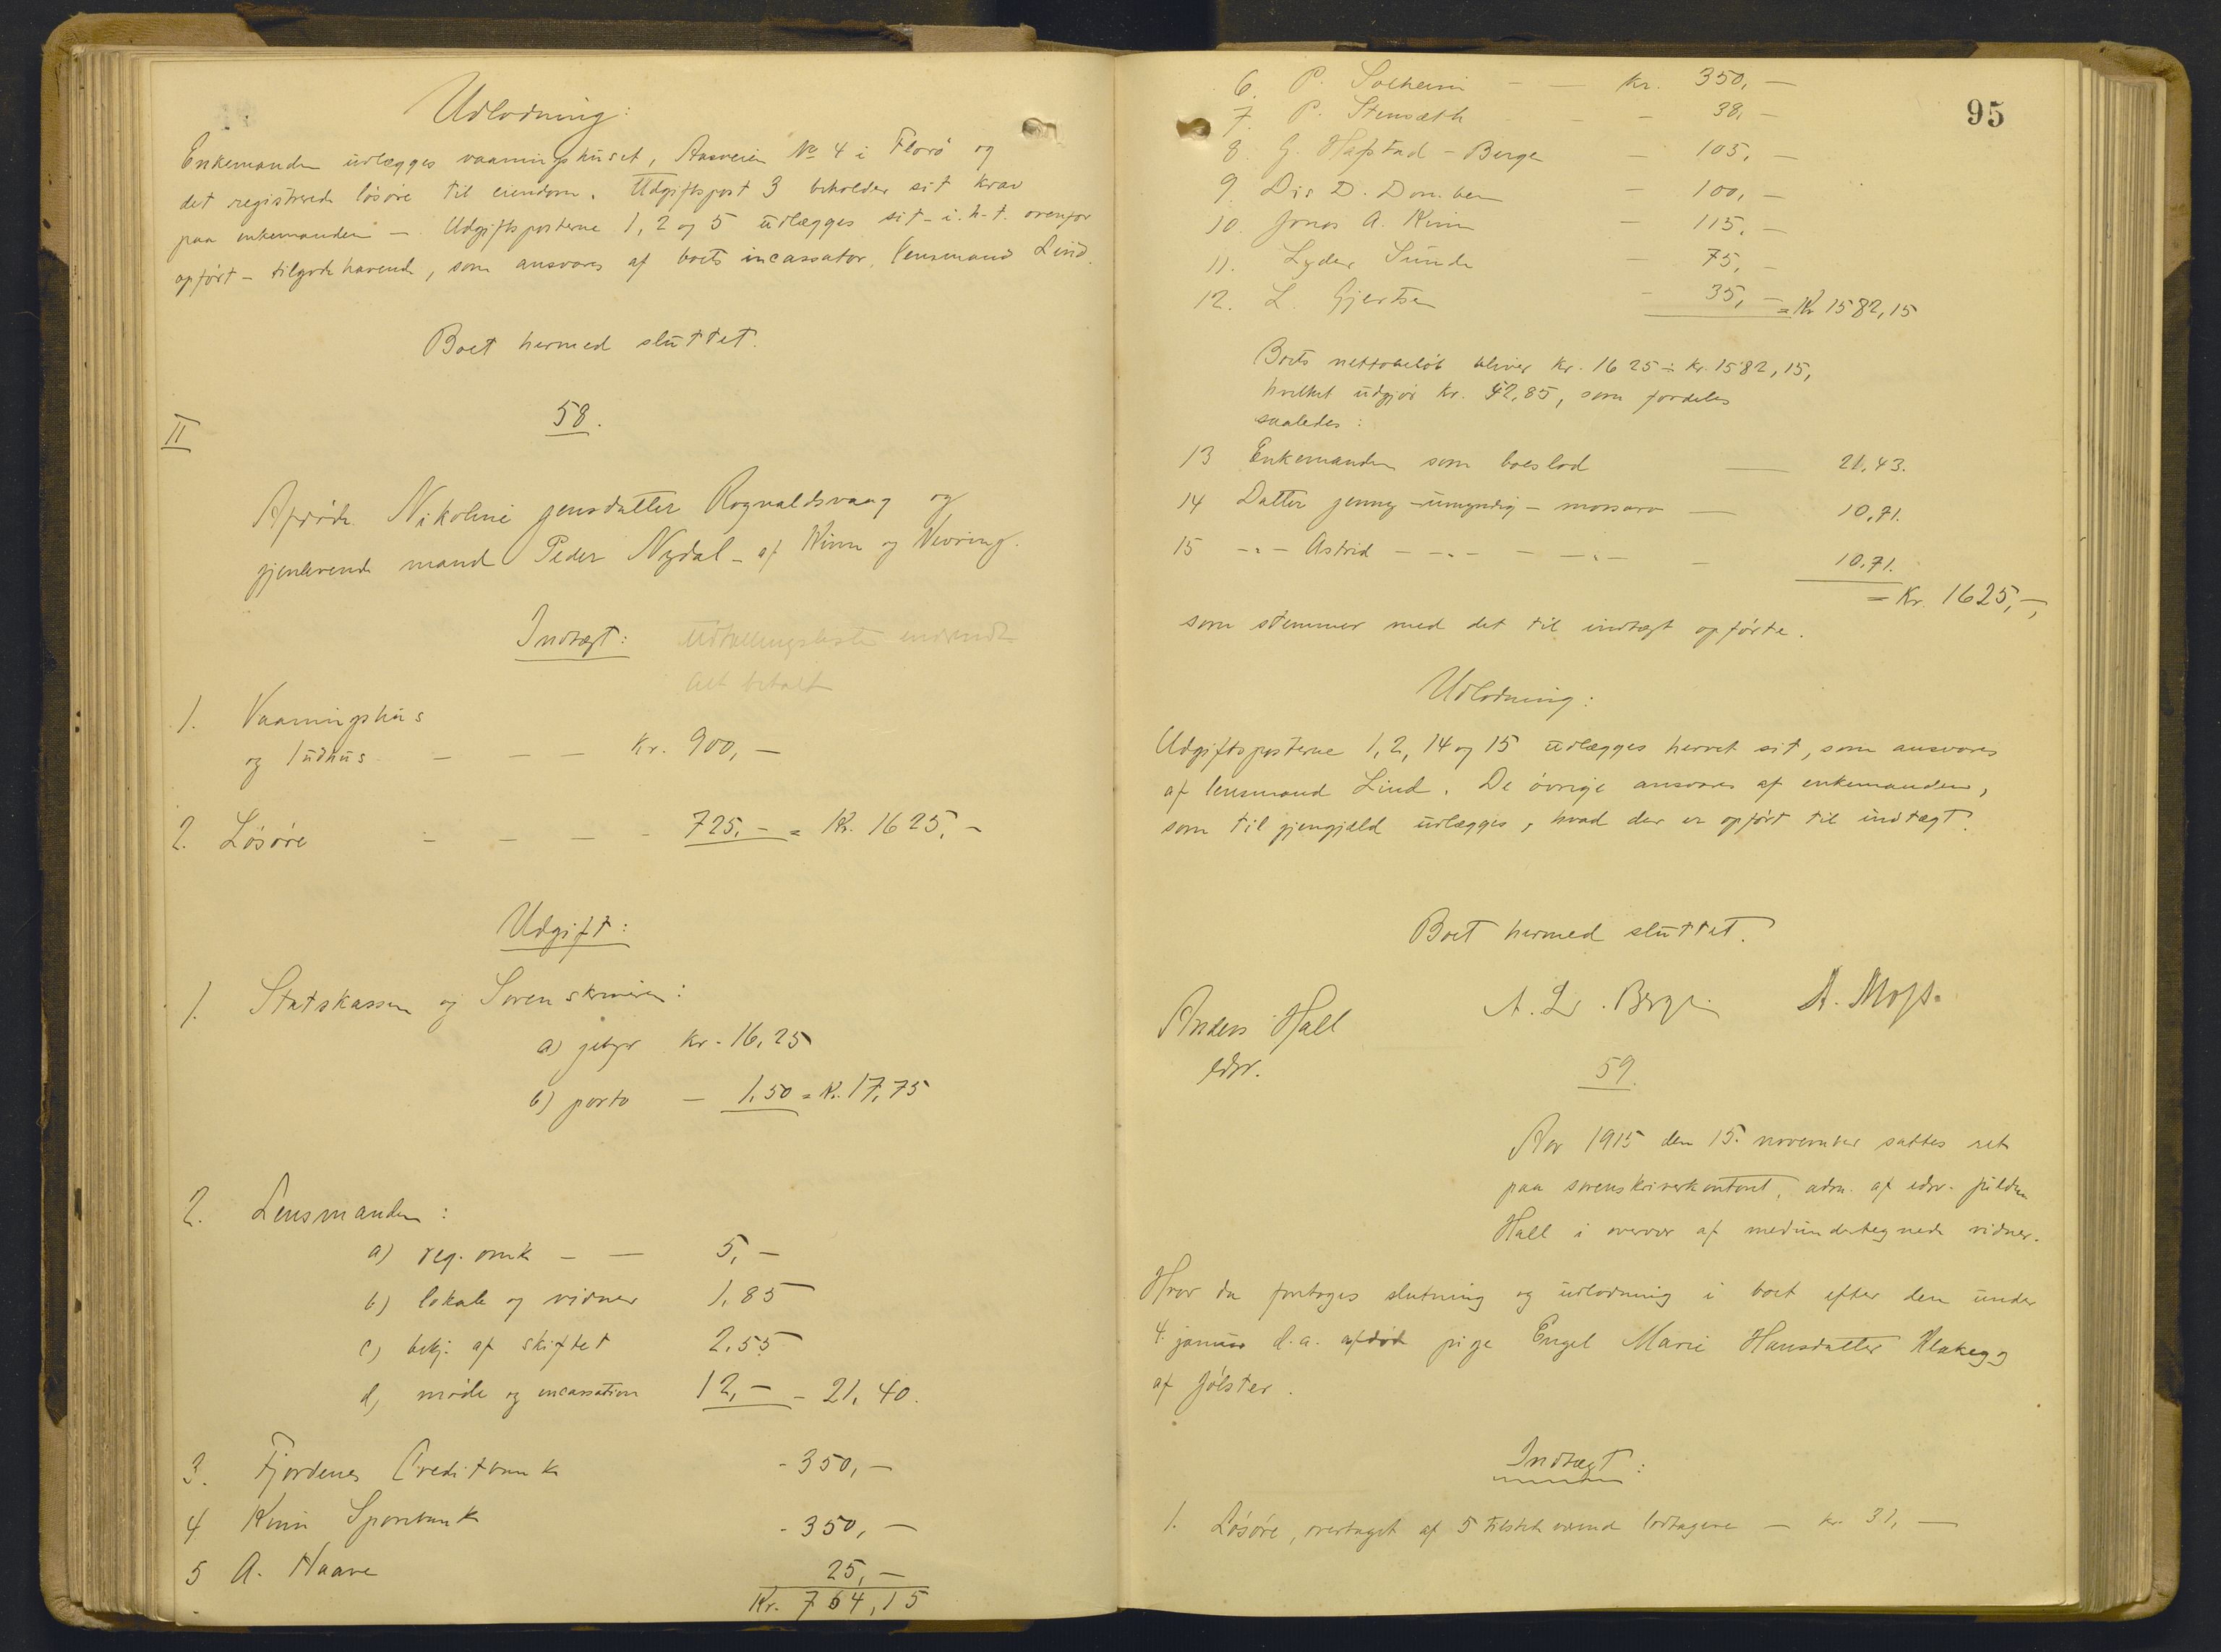 Udlodning:
Enkemanden udlægges vaaningshuset, Aasveien № 4 i Florö og
det registrerede lösöre til eiendom. Udgiftspost 3 beholder sit krav
paa enkemanden —. Udgiftsposterne 1, 2 og 5 udlægges sit - i. h. t. ovenfor
opført - tilgodehavende, som ansvares af boets incassator, lensmand Lind.
Boet hermed sluttet.
II
58.
Afdöde Nikoline Jensdatter Rognaldsvaag og
gjenlevende mand Peder Nydal - af Kinn og Nevring.
Indtægt: Utdelingsliste indsendt
Alt betalt
1. Vaaningshus
og 1 udhus — — — Kr. 900, —
2. Lösöre — — — — - 725, - = Kr. 1625, -
Udgift:
1. Statskassen og Sorenskriveren:
a) gebyr Kr. 16,25
b) porto — 1,50 = Kr. 17,75
2. Lensmanden:
a) reg. omk — — 5, —
b) lokale og vidner 1,85
c) bekj. af skiftet 2,55
d) møde og incassation 12, — - 21,40.
3. Fjordenes Creditbank - 350, —
4 Kinn Sparebank - 350, —
5 A. Haave 25, —
Kr. 764,15
95
6. P. Solheim — — Kr. 350, —
7. P. Stensæth — — 38, —
8. G. Hafstad - Bergen — 105, —
9. Dis D. — 100, —
10. Jonas A. Kinn — 115, —
11. Lyder Sunde — 75, —
12. L. Gjertsen — 35, — = Kr 1582,15
Boets nettobeløb bliver Kr. 1625 ÷ Kr. 1582,15,
hvilket udgjör Kr. 42,85, som fordeles
saaledes:
13 Enkemanden som boeslod — 21,43.
14 Datter Jenny - umyndig - morsarv — 10,71.
15 -"- Astrid - -"- - -"- — 10,71.
= Kr. 1625, —,
som stemmer med det til indtægt opförte.
Udlodning:
Udgiftsposterne 1, 2, 14 og 15 udlægges hervet sit, som ansvares
af lensmand Lind. De övrige ansvares af enkemanden,
som til gjengjæld udlægges, hvad der er opfört til indtægt.
Boet hermed sluttet.
Anders Hall
edsv.
A. L. A.
59.
Aar 1915 den 15. november sattes ret
paa sorenskriverkontoret, adm. af edsv. fuldm.
Hall i overvær af medundertegnede vidner.
Hvor da foretoges slutning og udlodning i boet efter den under
4. januar d.a. afdöde pige Engel Marie Hansdatter Klakegg
af Jölster.
Indtægt:
1. Lösöre, overtaget af 5 tilstedeværende lodtagere — kr. 31, —